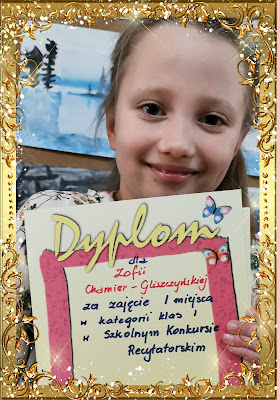 Dyplom
dla
Zofii
Chamier - Gliszczyńskiej
za zajęcie I miejsca
w kategorii klas I
w Szkolnym Konkursie
Recytatorskim